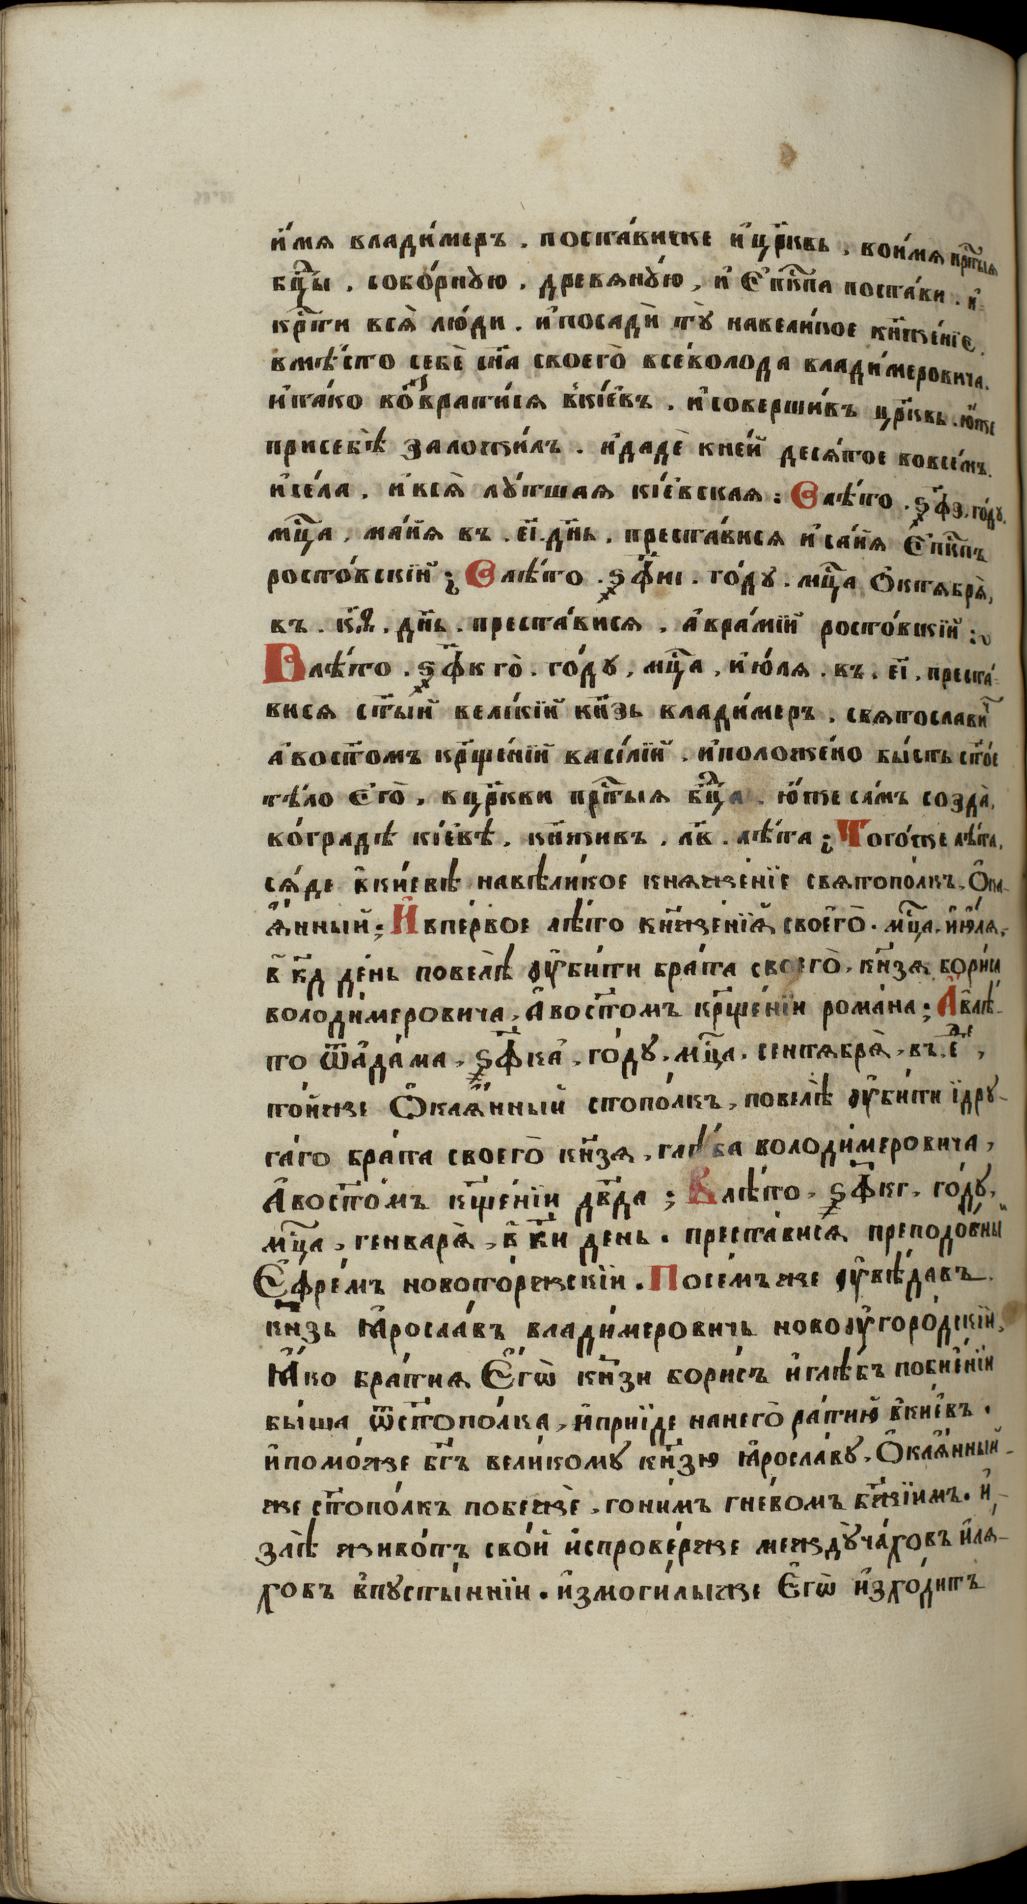 и҆́мѧ владимеръ . постави́же и҆цр҃ковь . вои́мѧ прⷭ҇тыѧ
бц҃ы . собо́рнꙋю . древѧнꙋ́ю , и҆ Е҆пⷭ҇кпа поста́ви . и҆
крⷭ҇ти всѧ̀ лю́ди . и҆посадѝ тꙋ̀ навели́кое кн҃же́нїе .
вмѣ́сто себѐ сн҃а своего̀ все́волода влади́меровича .
и҆та́ко во́звратисѧ вкі́евъ . и҆соверши́въ цр҃ковь . ю҆́же
присебѣ̀ заложи́лъ . и҆дадѐ кне́й десѧ́тое вовсе́мъ .
и҆се́ла . и҆всѧ̀ лꙋ́тшаѧ кі́евскаѧ : Влѣ́то . ѕ҂ф҃з . го́дꙋ ,
мцⷭ҇а , ма́йѧ въ . е҃і . дн҃ь . преста́висѧ и҆са́йѧ Е҆пⷭ҇кпъ
росто́вскїй ; Влѣ́то . ѕ҂ф҃иі . го́дꙋ . мцⷭ҇а Ѻ҆ктѧбрѧ̀ ,
въ . к҃ѳ . дн҃ь . преста́висѧ . а҆вра́мїй росто́вскїй :
Влѣ́то . ѕ҂ф҃к го̀ . го́дꙋ , мцⷭ҇а , и҆ю́лѧ . въ . е҃і , преста́-
висѧ ст҃ы́й вели́кїй кн҃зь влади́меръ . свѧтослави́ч
а҆вост҃омъ крⷭ҇ще́нїй васи́лїй . и҆положе́но бы́сть ст҃о́е
тѣ́ло Е҆го̀ , вцр҃кви прⷭ҇тыѧ бц҃ы . ю҆́же са́мъ созда̀ ,
во́градѣ кі́евѣ , кн҃живъ , л҃в . лѣ́та ; Тогѡ́же лѣ́та ,
сѧ́де вкиевѣ навѣли́кое кнѧже́нїе свѧтопо́лкъ , Ѻ҆ка-
ѧ҆́нный ; И҆впе́рвое лѣ́то кн҃же́нїѧ своего̀ . мцⷭ҇а . и҆ю҆лѧ ,
в к҃д де́нь повелѣ̀ ᲂу҆би́ти бра́та своего̀ , кн҃зѧ бори́са
володи́меровича , А҆вост҃омъ крⷭ҇ще́нїи рома́на ; А҆влѣ-
то ѿа҆да́ма , ѕ҂ф҃ка , го́дꙋ , мцⷭ҇а . сентѧбрѧ̀ , въ . е ,
то́йже Ѻ҆каѧ҆́нный стопо́лкъ , повелѣ̀ ᲂу҆би́ти ї҆дрꙋ-
га́го бра́та своего̀ кн҃зѧ , глѣ́ба володи́меровича ,
А҆вост҃о́мъ кⷭ҇ще́нїи дв҃да ; Влѣ́то , ѕ҂ф҃кг , го́дꙋ ,
мцⷭ҇а , генварѧ̀ , в к҃и день . преста́висѧ преподо́бный
Е҆фре́мъ новото́ржскїи . Посе́мъ же ᲂу҆вѣ́давъ
кн҃зь ꙗ҆росла́въ влади́меровичь новоᲂугоро́дскїй ,
ꙗ҆́ко бра́тиѧ Е҆гѡ̀ кн҃зи бори́съ и҆глѣ́бъ побие́нїи
бы́ша ѿст҃опо́лка , и҆прїи́де нанего̀ ра́тию вкиевъ .
и҆помо́же бг҃ъ вели́комꙋ кн҃зю ꙗ҆росла́вꙋ , Ѻ҆каѧ҆́нный
же ст҃опо́лкъ побежѐ , гони́мъ гне́вомъ бж҃їимъ . и҆
злѣ̀ живо́тъ сво́й и҆спрове́рже междꙋ̀ча́ховъ и҆лѧ-
ховъ впꙋсты́ннїи . и҆змоги́лыже Е҆гѡ̀ и҆схо́дитъ